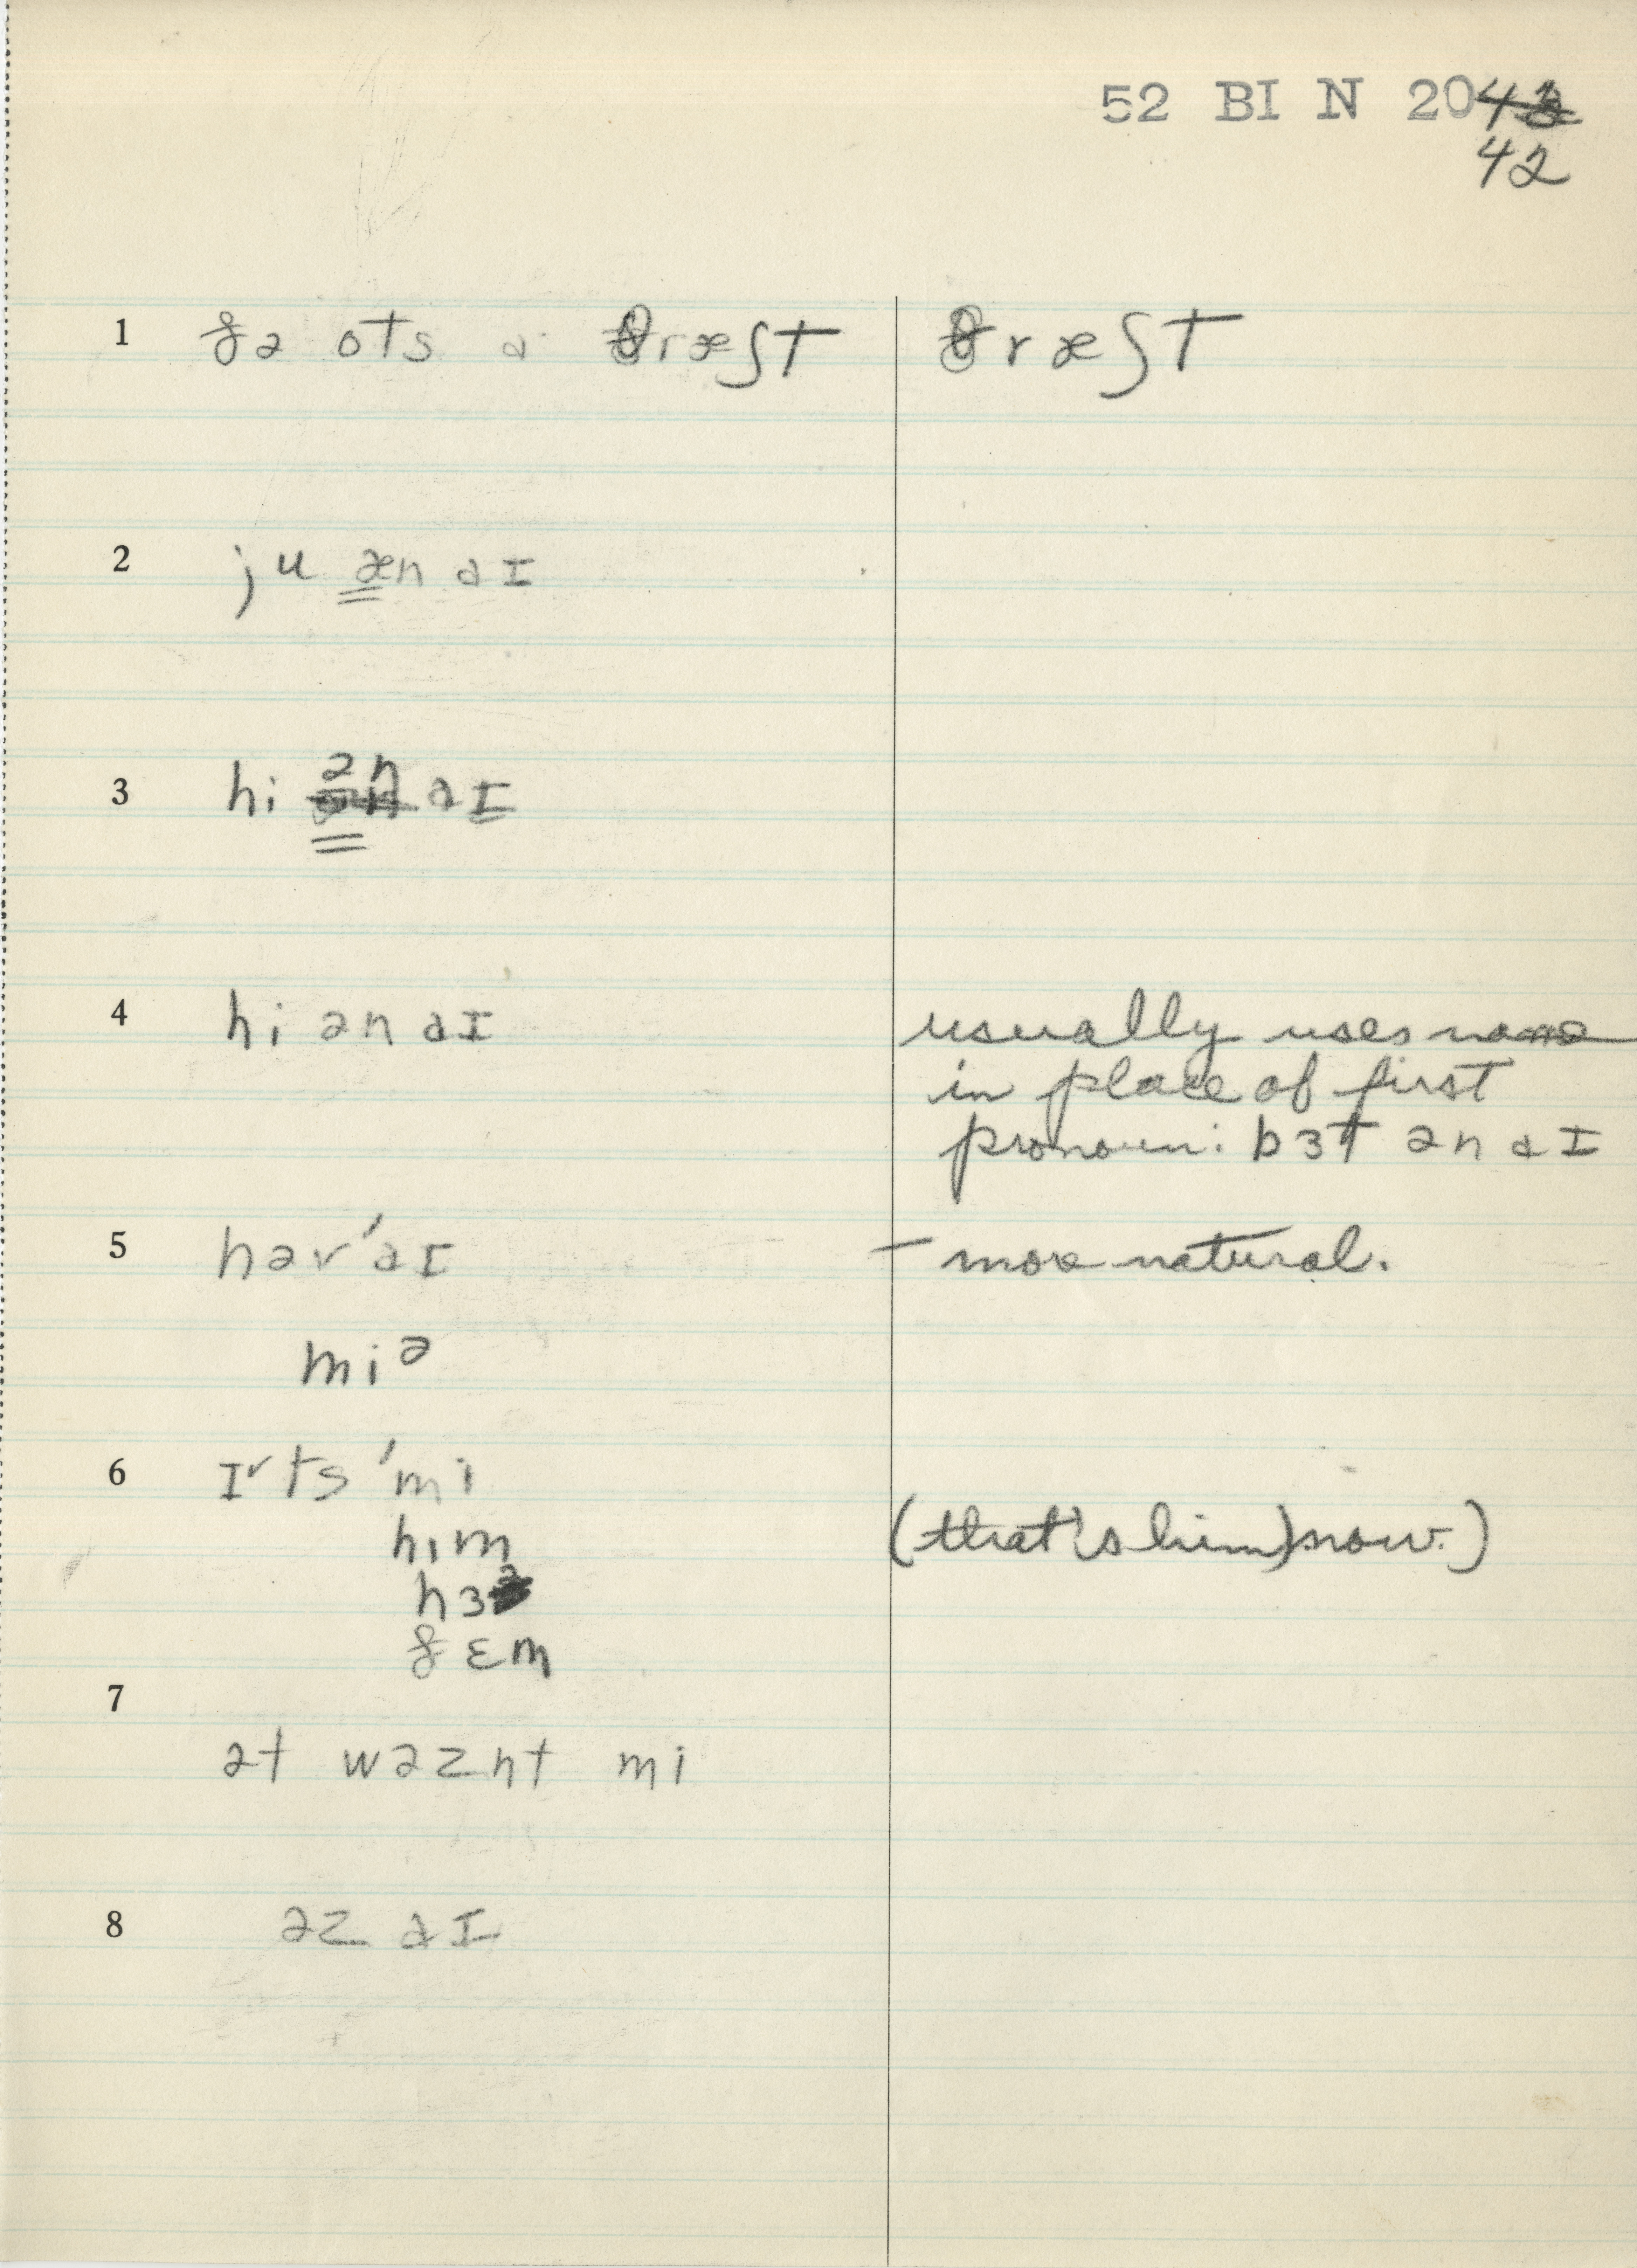 52 BI N 20
42
1 ðə ots a θræʃt θræʃt
2 ju æn aɪ
3 hi ən aɪ
4 hi ən aɪ usually uses name
in place of first
pronoun: bɜt ən aɪ
5 hər'aɪ - more natural.
miə
6 ɪ˅ts 'mi
hɪm (that's him) now.)
hɜ
ðɛm
7
ət wəznt mi
8 əz aɪ